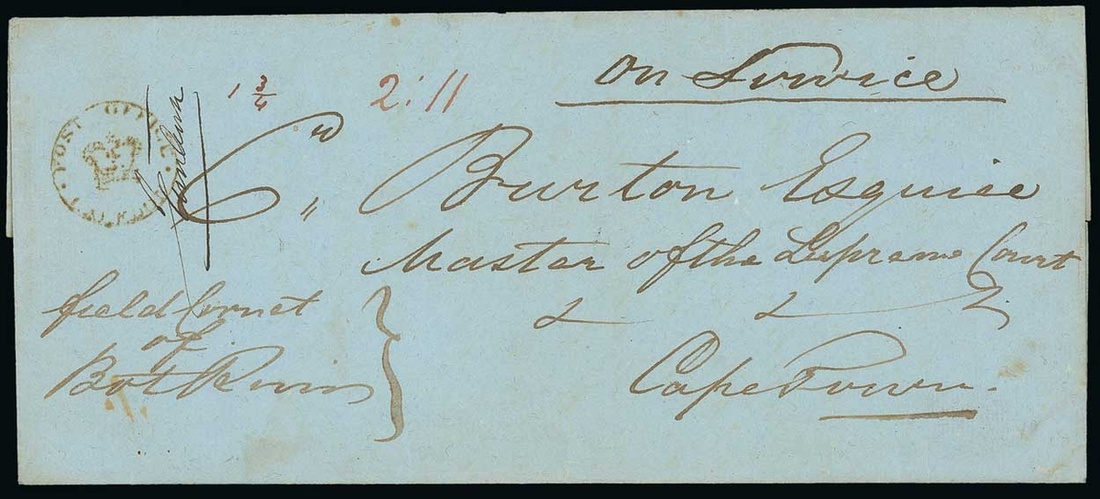 On Service
1 3/4 2:11
POST OFFICE
Cd „ Burton Esquire
Master of the Supreme Court
& & &
Cape Town.
field Cornet
of
Bot River